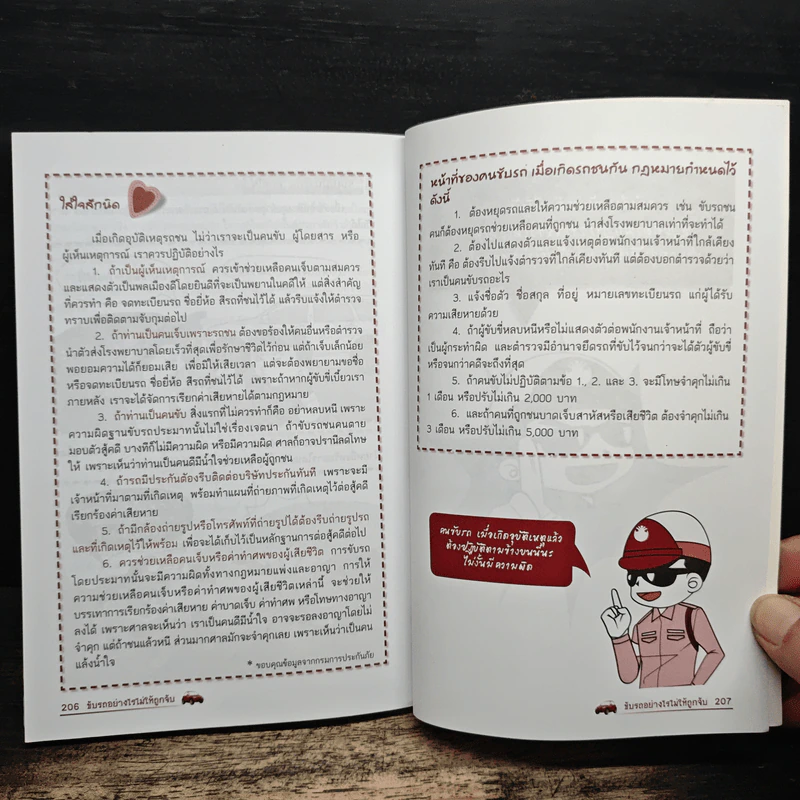 ใส่ใจสักนิด
เมื่อเกิดอุบัติเหตุรถชน ไม่ว่าเราจะเป็นคนขับ ผู้โดยสาร หรือ
ผู้เห็นเหตุการณ์ เราควรปฏิบัติอย่างไร
1. ถ้าเป็นผู้เห็นเหตุการณ์ ควรเข้าช่วยเหลือคนเจ็บตามสมควร
และแสดงตัวเป็นพลเมืองดีโดยยินดีที่จะเป็นพยานในคดีให้ แต่สิ่งสำคัญ
ที่ควรทำ คือ จดทะเบียนรถ ชื่อยี่ห้อ สีรถที่ชนไว้ได้ แล้วรีบแจ้งให้ตำรวจ
ทราบเพื่อติดตามจับกุมต่อไป
2. ถ้าท่านเป็นคนเจ็บเพราะรถชน ต้องขอร้องให้คนอื่นหรือตำรวจ
นำตัวส่งโรงพยาบาลโดยเร็วที่สุดเพื่อรักษาชีวิตไว้ก่อน แต่ถ้าเจ็บเล็กน้อย
พอยอมความได้ก็ยอมเสีย เพื่อมิให้เสียเวลา แต่จะต้องพยายามขอชื่อ
หรือจดทะเบียนรถ ชื่อยี่ห้อ สีรถที่ชนไว้ได้ เพราะถ้าหากผู้ขับขี่เบี้ยวเรา
ภายหลัง เราจะได้จัดการเรียกร้องค่าเสียหายได้ตามกฎหมาย
3. ถ้าท่านเป็นคนขับ สิ่งแรกที่ไม่ควรทำก็คือ อย่าหลบหนี เพราะ
ความผิดฐานขับรถประมาทนั้นไม่ใช่เรื่องเจตนา ถ้าขับรถชนคนตาย
มอบตัวสู้คดี บางทีก็ไม่มีความผิด หรือมีความผิด ศาลก็อาจปรานีลดโทษ
ให้ เพราะเห็นว่าท่านเป็นคนดีมีน้ำใจช่วยเหลือผู้ถูกชน
4. ถ้ารถมีประกันต้องรีบติดต่อบริษัทประกันทันที เพราะจะมี
เจ้าหน้าที่มาตามที่เกิดเหตุ พร้อมทำแผนที่ถ่ายภาพที่เกิดเหตุไว้ต่อสู้คดี
เรียกร้องค่าเสียหาย
5. ถ้ามีกล้องถ่ายรูปหรือโทรศัพท์ที่ถ่ายรูปได้ต้องรีบถ่ายรูปรถ
และที่เกิดเหตุไว้ให้พร้อม เพื่อจะได้เก็บไว้เป็นหลักฐานการต่อสู้คดีต่อไป
6. ควรช่วยเหลือคนเจ็บหรือค่าทำศพของผู้เสียชีวิต การขับรถ
โดยประมาทนั้นจะมีความผิดทั้งทางกฎหมายแพ่งและอาญา การให้
ความช่วยเหลือคนเจ็บหรือค่าทำศพของผู้เสียชีวิตเหล่านี้ จะช่วยให้
บรรเทาการเรียกร้องค่าเสียหาย ค่าบาดเจ็บ ค่าทำศพ หรือโทษทางอาญา
ลงได้ เพราะศาลจะเห็นว่า เราเป็นคนดีมีน้ำใจ อาจจะรอลงอาญาโดยไม่
จำคุก แต่ถ้าชนแล้วหนี ส่วนมากศาลมักจะจำคุกเลย เพราะเห็นว่าเป็นคน
แล้งน้ำใจ
* ขอบคุณข้อมูลจากกรมการประกันภัย
206 ขับรถอย่างไรไม่ให้ถูกจับ
หน้าที่ของคนขับรถ เมื่อเกิดรถชนกัน กฎหมายกำหนดไว้
ดังนี้
1. ต้องหยุดรถและให้ความช่วยเหลือตามสมควร เช่น ขับรถชน
คนก็ต้องหยุดรถช่วยเหลือคนที่ถูกชน นำส่งโรงพยาบาลเท่าที่จะทำได้
2. ต้องไปแสดงตัวและแจ้งเหตุต่อพนักงานเจ้าหน้าที่ใกล้เคียง
ทันที คือ ต้องรีบไปแจ้งตำรวจที่ใกล้เคียงทันที แต่ต้องบอกตำรวจด้วยว่า
เราเป็นคนขับรถอะไร
3. แจ้งชื่อตัว ชื่อสกุล ที่อยู่ หมายเลขทะเบียนรถ แก่ผู้ได้รับ
ความเสียหายด้วย
4. ถ้าผู้ขับขี่หลบหนีหรือไม่แสดงตัวต่อพนักงานเจ้าหน้าที่ ถือว่า
เป็นผู้กระทำผิด และตำรวจมีอำนาจยึดรถที่ขับไว้จนกว่าจะได้ตัวผู้ขับขี่
หรือจนกว่าคดีจะถึงที่สุด
5. ถ้าคนขับไม่ปฏิบัติตามข้อ 1., 2. และ 3. จะมีโทษจำคุกไม่เกิน
1 เดือน หรือปรับไม่เกิน 2,000 บาท
6. และถ้าคนที่ถูกชนบาดเจ็บสาหัสหรือเสียชีวิต ต้องจำคุกไม่เกิน
3 เดือน หรือปรับไม่เกิน 5,000 บาท
คนขับรถ เมื่อเกิดอุบัติเหตุแล้ว
ต้องปฏิบัติตามข้างบนนี้นะ
ไม่งั้นมีความผิด
ขับรถอย่างไรไม่ให้ถูกจับ 207